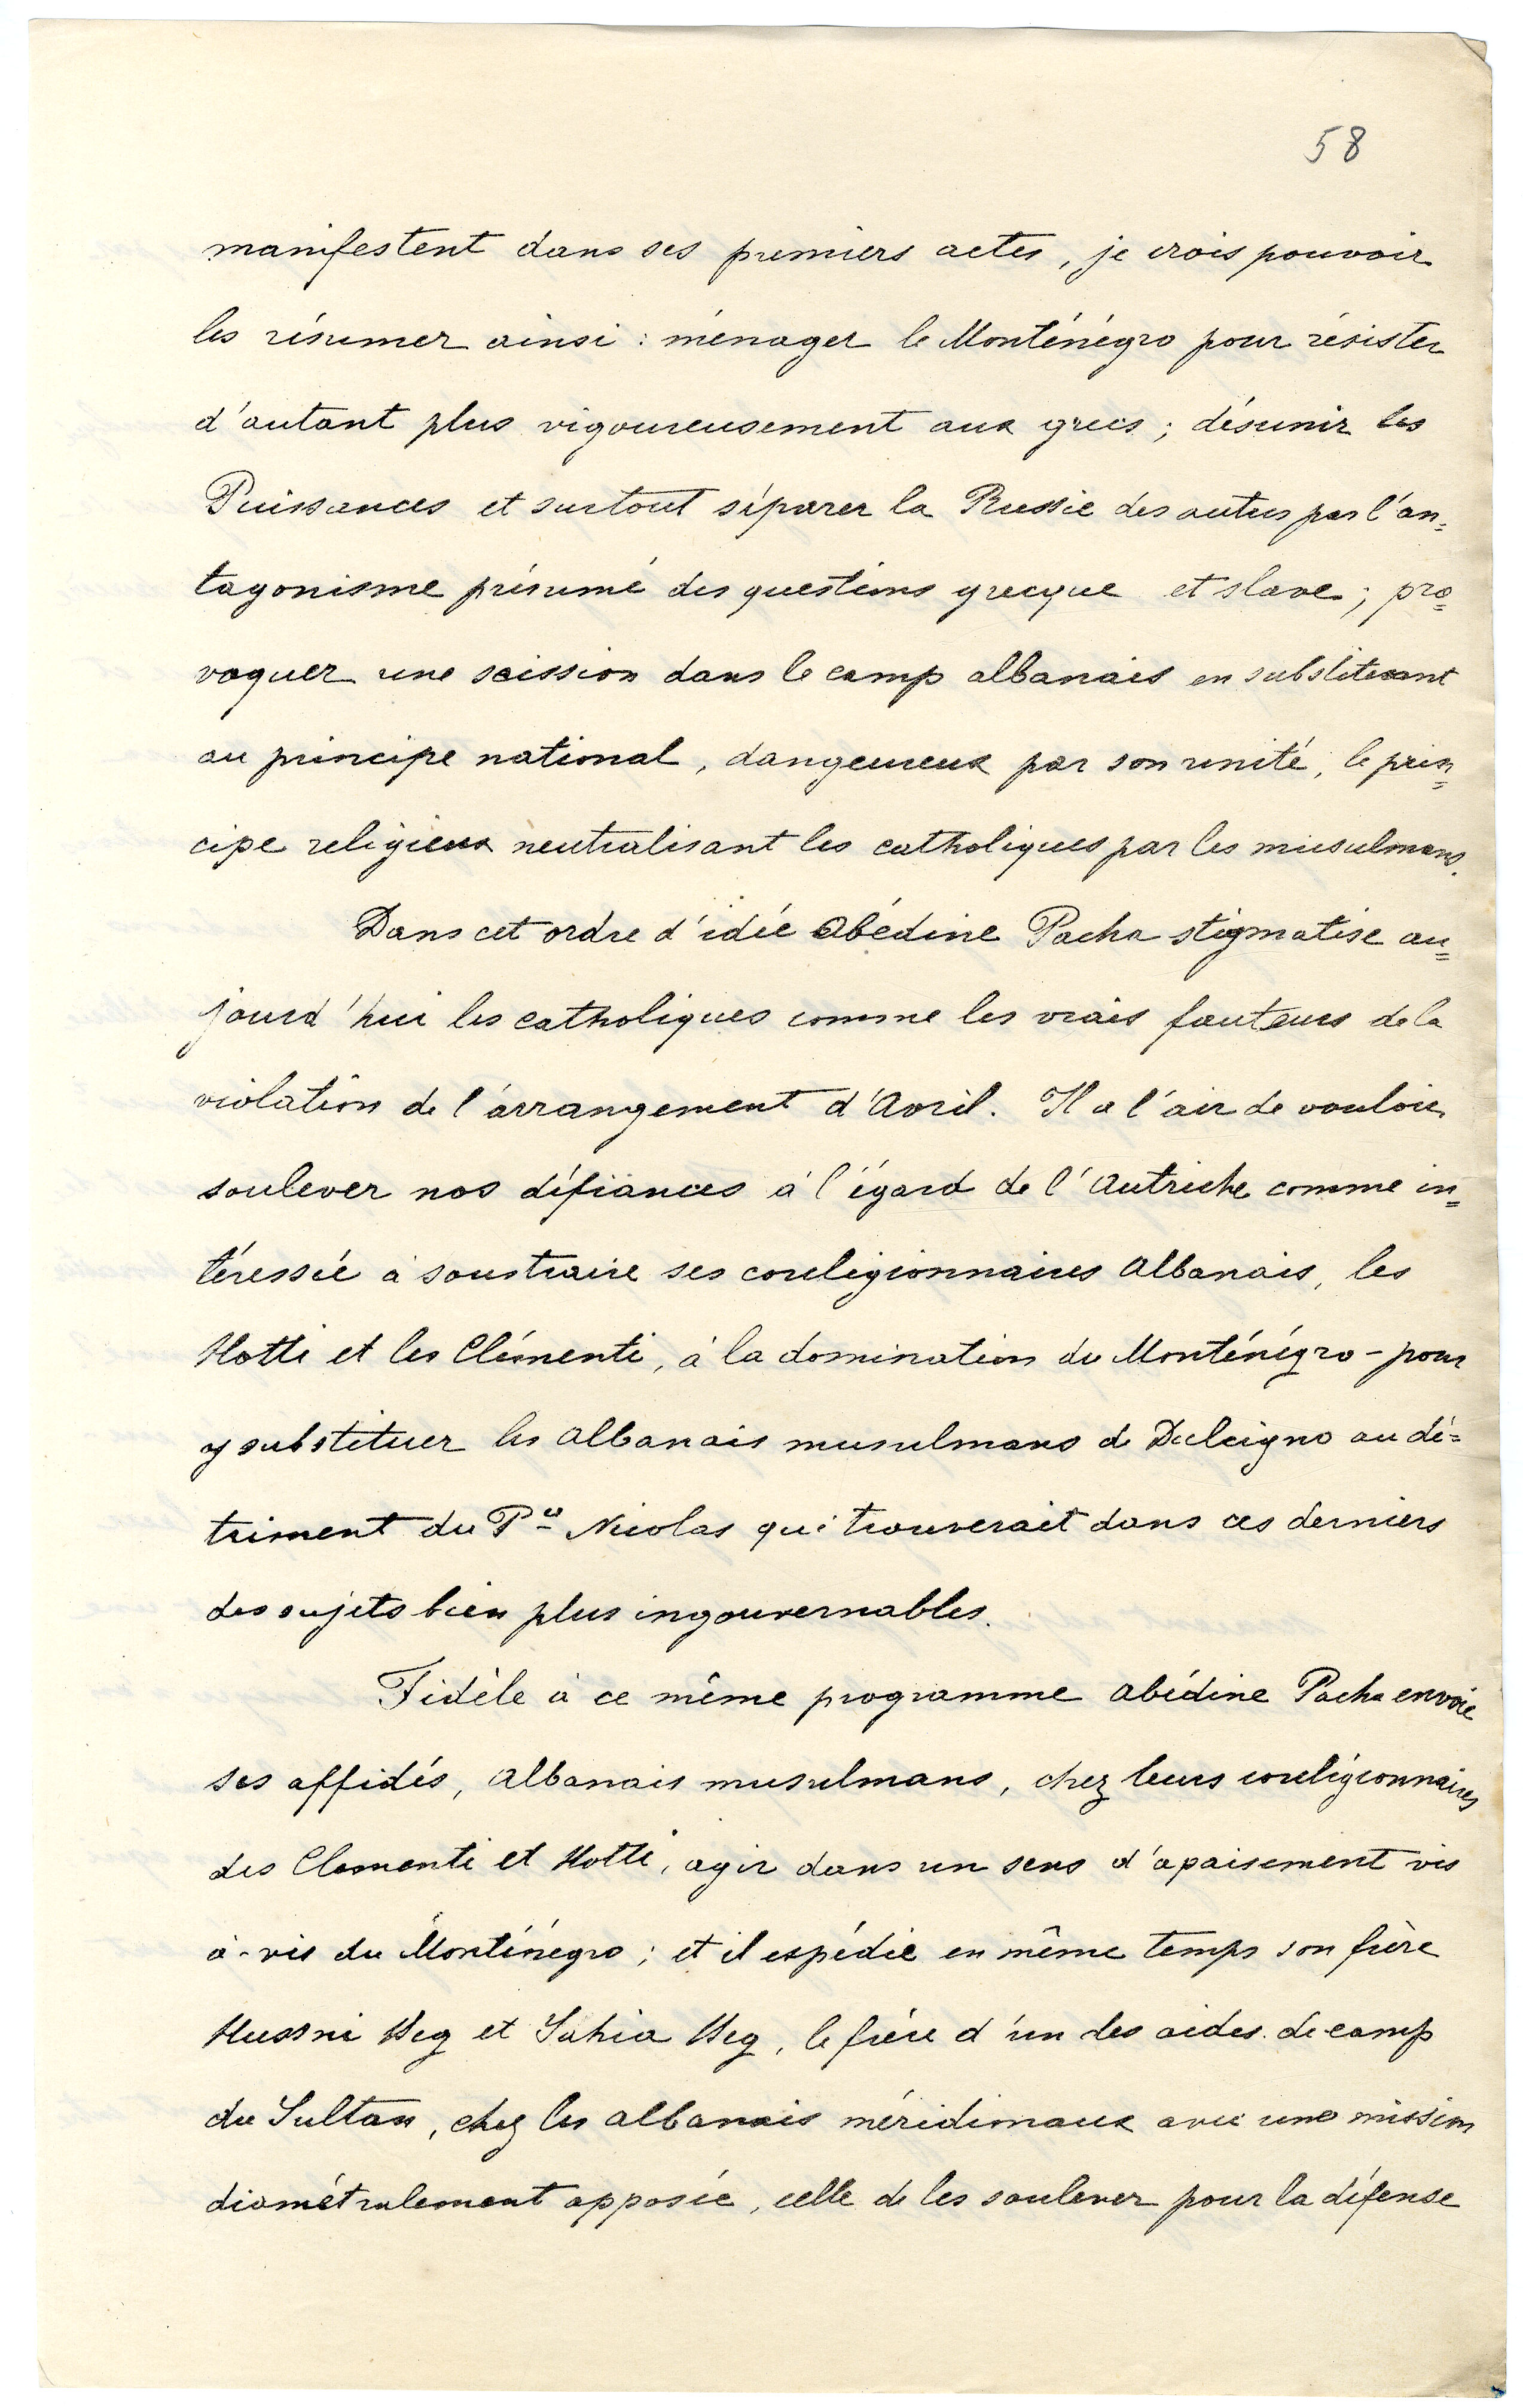 58
manifestent dans ses premiers actes, je crois pouvoir
les résumer ainsi : ménager le Monténégro pour résister
d'autant plus vigoureusement aux grecs ; désunir les
Puissances et surtout séparer la Russie des autres par l'an=
tagonisme présumé des questions grecque et slave ; pro=
voquer une scission dans le camp albanais en substituant
au principe national, dangereux par son unité, le prin=
cipe religieux neutralisant les catholiques par les musulmans.
Dans cet ordre d'idée Abédine Pacha stigmatise au=
jourd'hui les catholiques comme les vrais fauteurs de la
violation de l'arrangement d'Avril. Il a l'air de vouloir
soulever nos défiances à l'égard de l'Autriche comme in=
téressée à soustraire ses coreligionnaires Albanais, les
Hotti et les Clémenti, à la domination du Monténégro - pour
y substituer les Albanais musulmans de Dulcigno au dé=
triment du Pce Nicolas qui trouverait dans ces derniers
des sujets bien plus ingouvernables.
Fidèle à ce même programme Abédine Pacha envoie
ses affidés, Albanais musulmans, chez leurs coreligionnaires
des Clementi et Hotti, agir dans un sens d'apaisement vis
à-vis du Monténégro ; et il expédie en même temps son frère
Hussni Beg et Sahia Beg, le frère d'un des aides-de-camp
du Sultan, chez les Albanais méridionaux avec une mission
diamétralement opposée, celle de les soulever pour la défense